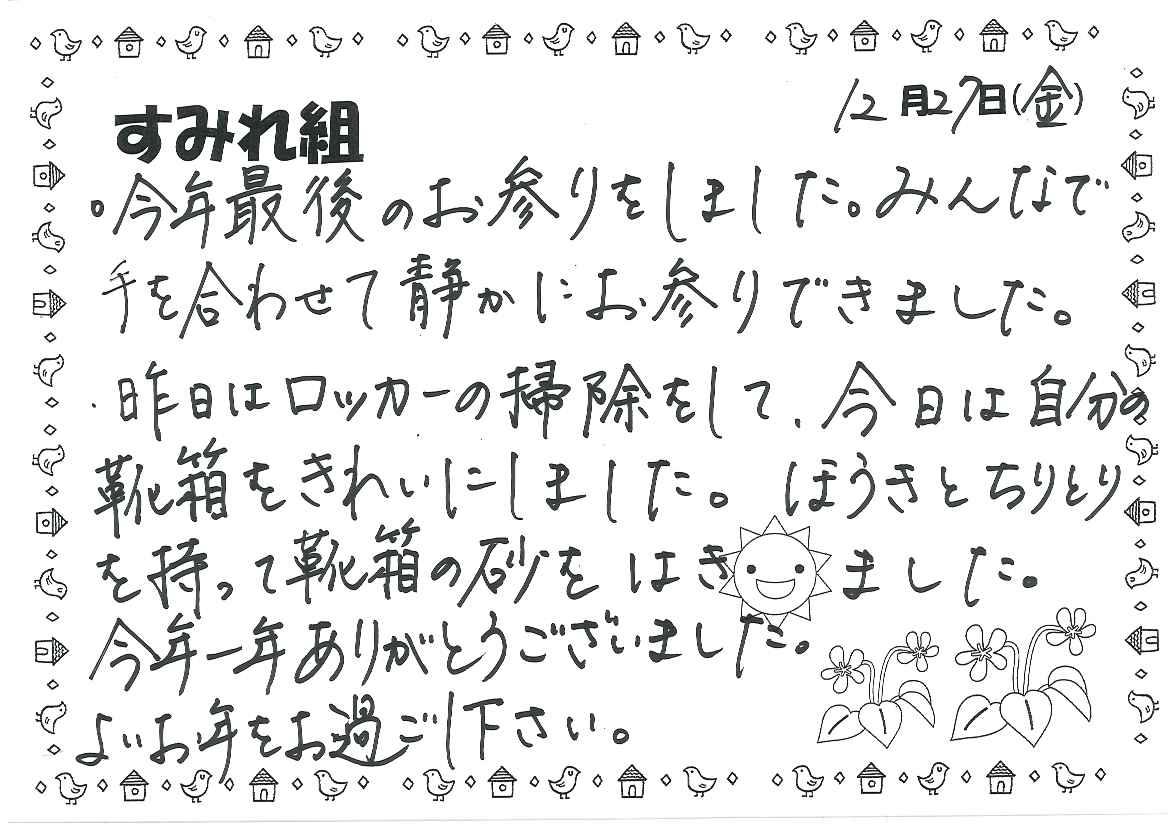 12月27日(金)
すみれ組
。今年最後のお参りをしました。みんなで
手を合わせて静かにお参りできました。
・昨日はロッカーの掃除をして、今日は自分の
靴箱をきれいにしました。ほうきとちりとり
を持って靴箱の砂をはきました。
今年一年ありがとうございました。
よいお年をお過ごし下さい。